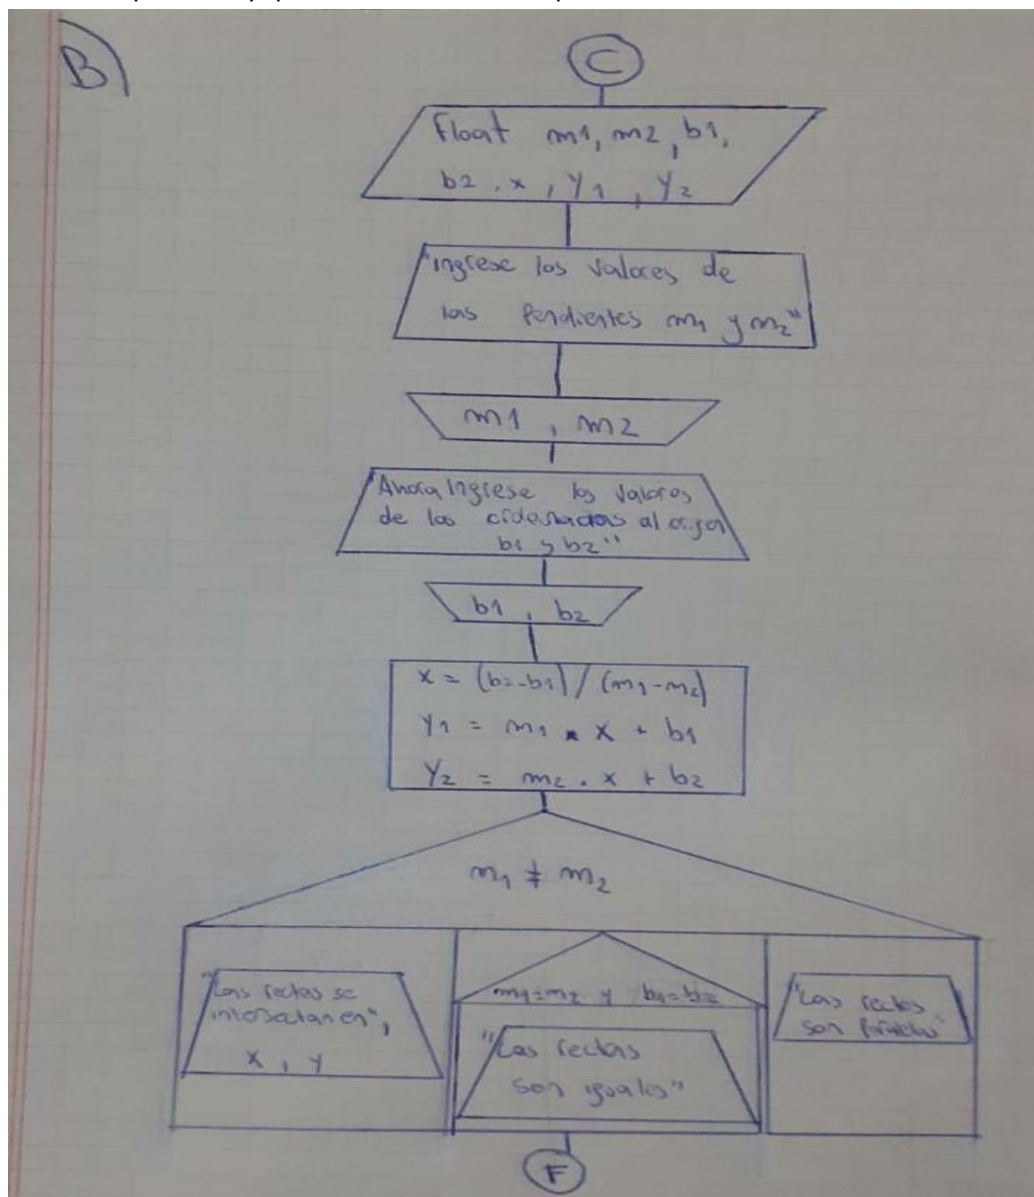 B)
C
Float m1, m2, b1,
b2, x, y1, y2
"Ingrese los valores de
las Pendientes m1 y m2"
m1, m2
"Ahora Ingrese los valores
de las ordenadas al origen
b1 y b2"
b1, b2
x = (b2-b1) / (m1-m2)
y1 = m1 * x + b1
y2 = m2 . x + b2
m1 ≠ m2
"Las rectas se
intersectan en",
x, y
m1=m2 y b1=b2
"Las rectas
son iguales"
"Las rectas
son Paralelas"
F